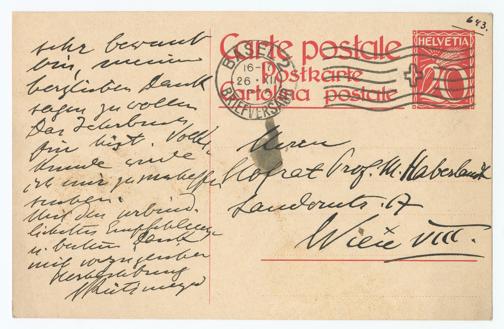 643.
Carte postale
Postkarte
Cartolina postale
HELVETIA
20
BASEL 2
16-17
26. XII
BRIEFVERSAND
sehr bewusst
bin, meinen
herzlichen Dank
sagen zu wollen.
Das Jahrbuch
für hist. Volks-
kunde werde
ich mir zu verschaffen
suchen.
Mit den verbind-
lichsten Empfehlungen
u. bestem Dank
mit vorzüglicher
Herrn
Hofrat Prof. M. Haberlandt
Laudongs. 17
Wien VIII.